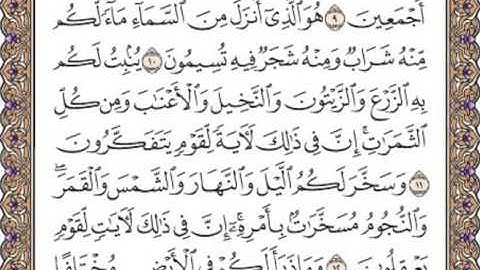 أَجْمَعِينَ ٩ هُوَ ٱلَّذِىٓ أَنزَلَ مِنَ ٱلسَّمَآءِ مَآءً لَّكُم
مِّنْهُ شَرَابٌ وَمِنْهُ شَجَرٌ فِيهِ تُسِيمُونَ ١٠ يُنۢبِتُ لَكُم
بِهِ ٱلزَّرْعَ وَٱلزَّيْتُونَ وَٱلنَّخِيلَ وَٱلْأَعْنَٰبَ وَمِن كُلِّ
ٱلثَّمَرَٰتِ إِنَّ فِى ذَٰلِكَ لَءَايَةً لِّقَوْمٍ يَتَفَكَّرُونَ
١١ وَسَخَّرَ لَكُمُ ٱلَّيْلَ وَٱلنَّهَارَ وَٱلشَّمْسَ وَٱلْقَمَرَ ۖ
وَٱلنُّجُومُ مُسَخَّرَٰتٌۢ بِأَمْرِهِۦٓ ۗ إِنَّ فِى ذَٰلِكَ لَءَايَٰتٍ لِّقَوْمٍ
يَعْقِلُونَ ١٢ وَمَا ذَرَأَ لَكُمْ فِى ٱلْأَرْضِ مُخْتَلِفًا